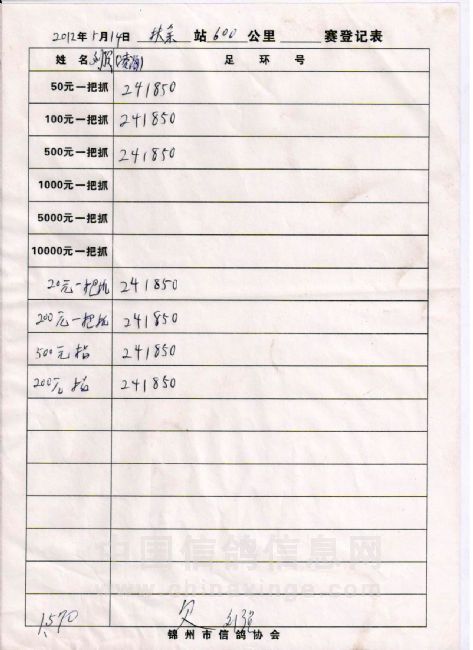 2012年5月14日 扶余 站 600 公里 赛登记表
姓名 足环号
50元一把抓 241850
100元一把抓 241850
500元一把抓 241850
1000元一把抓
5000元一把抓
10000元一把抓
20元一把抓 241850
200元一把抓 241850
500元指 241850
200元指 241850
中国信鸽信息网
www.chinaxinge.com
1570 欠
锦州市信鸽协会